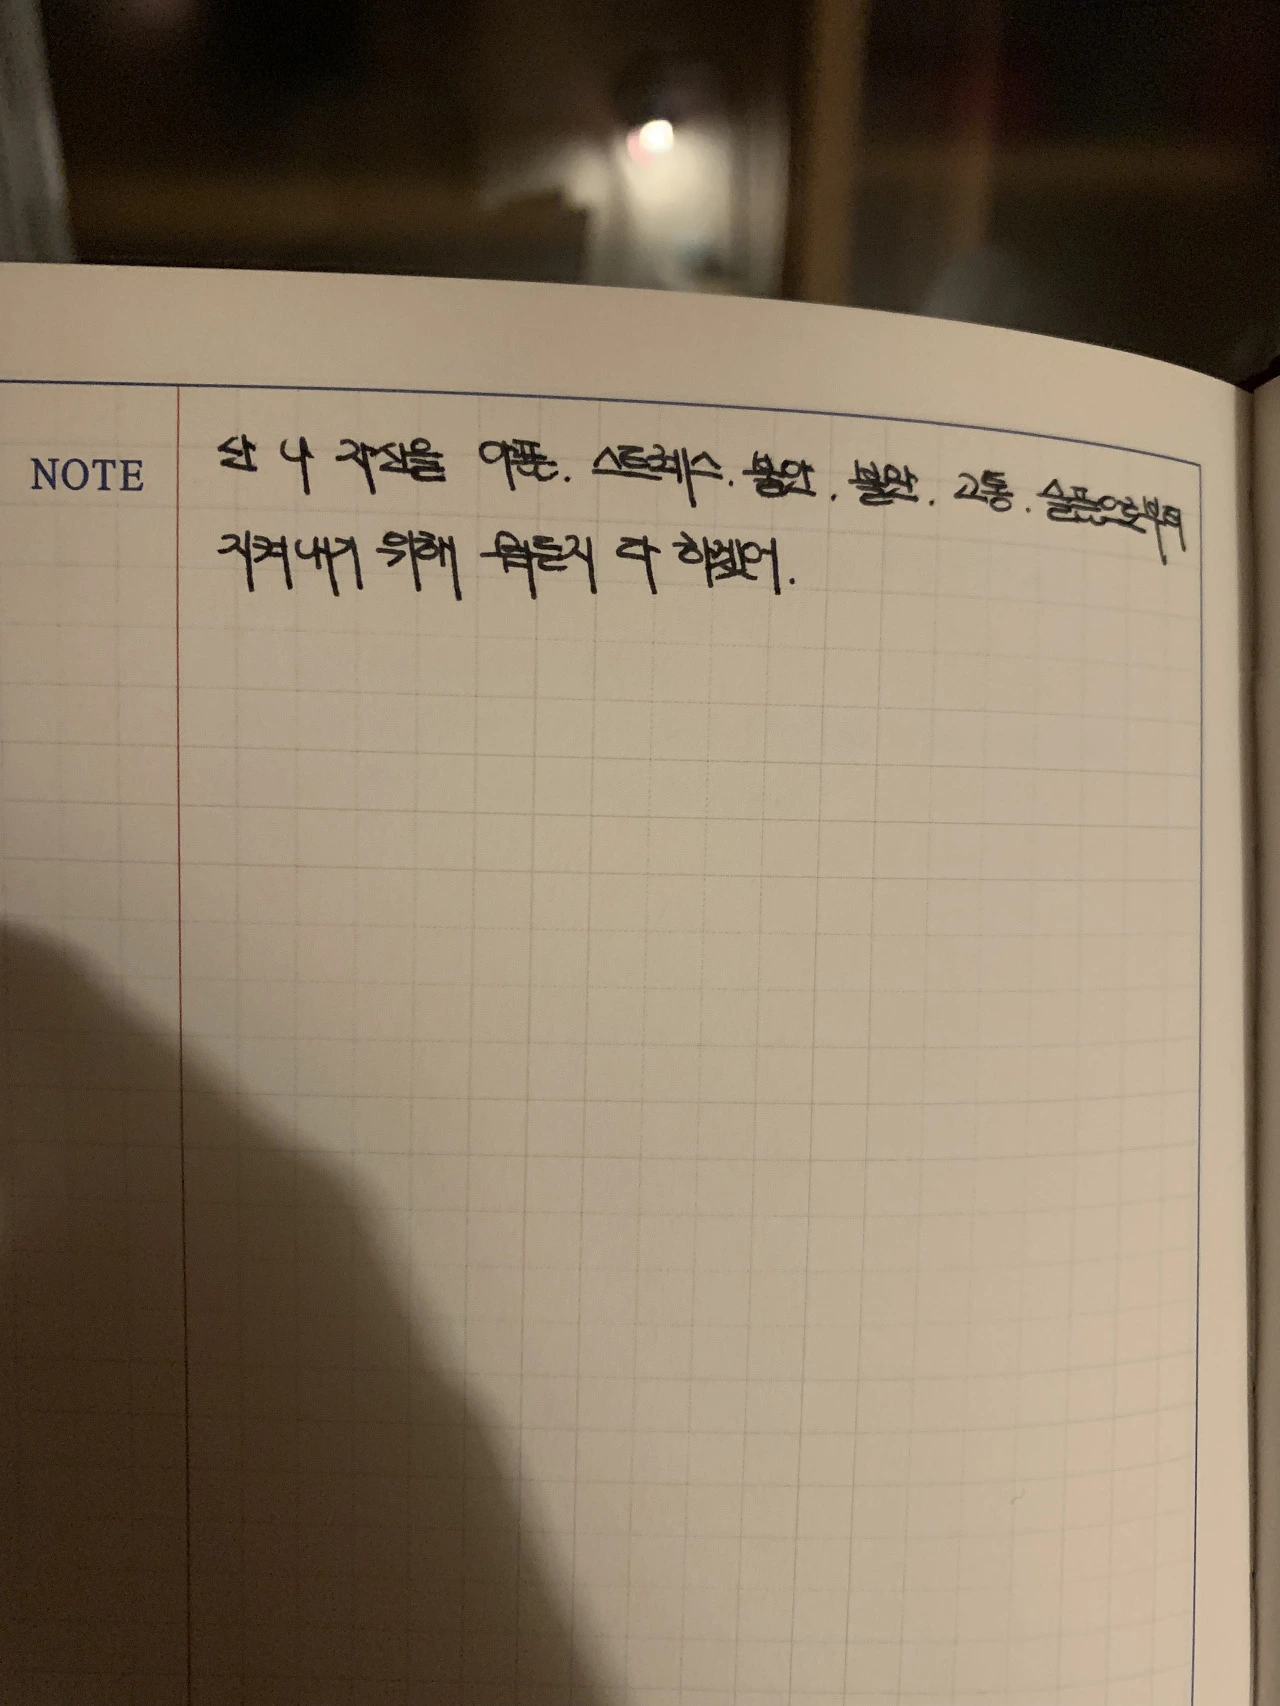 NOTE
난 나 자신을 아픔. 스트레스. 불안. 불만. 고통. 슬픔으로부터
지켜내기 위해 뭐든지 다 하겠어.